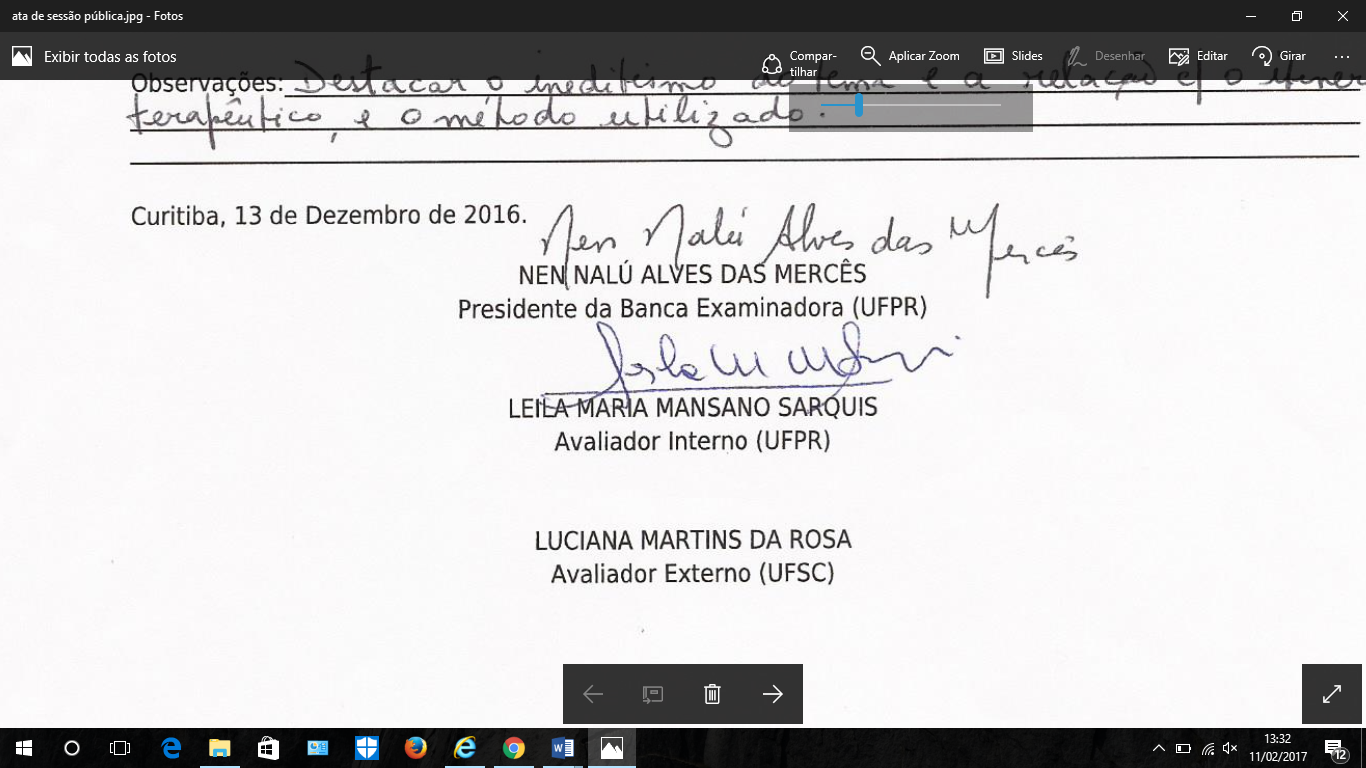 ata de sessão pública.jpg - Fotos
Exibir todas as fotos
Compar-
tilhar
Aplicar Zoom
Slides
Desenhar
Editar
Girar
Observações: Destacar o ineditismo do tema e a relação c/ o itiner
terapêutico, e o método utilizado.
Curitiba, 13 de Dezembro de 2016.
Nen Nalú Alves das Mercês
NEN NALÚ ALVES DAS MERCÊS
Presidente da Banca Examinadora (UFPR)
LEILA MARIA MANSANO SARQUIS
Avaliador Interno (UFPR)
LUCIANA MARTINS DA ROSA
Avaliador Externo (UFSC)
13:32
11/02/2017
12